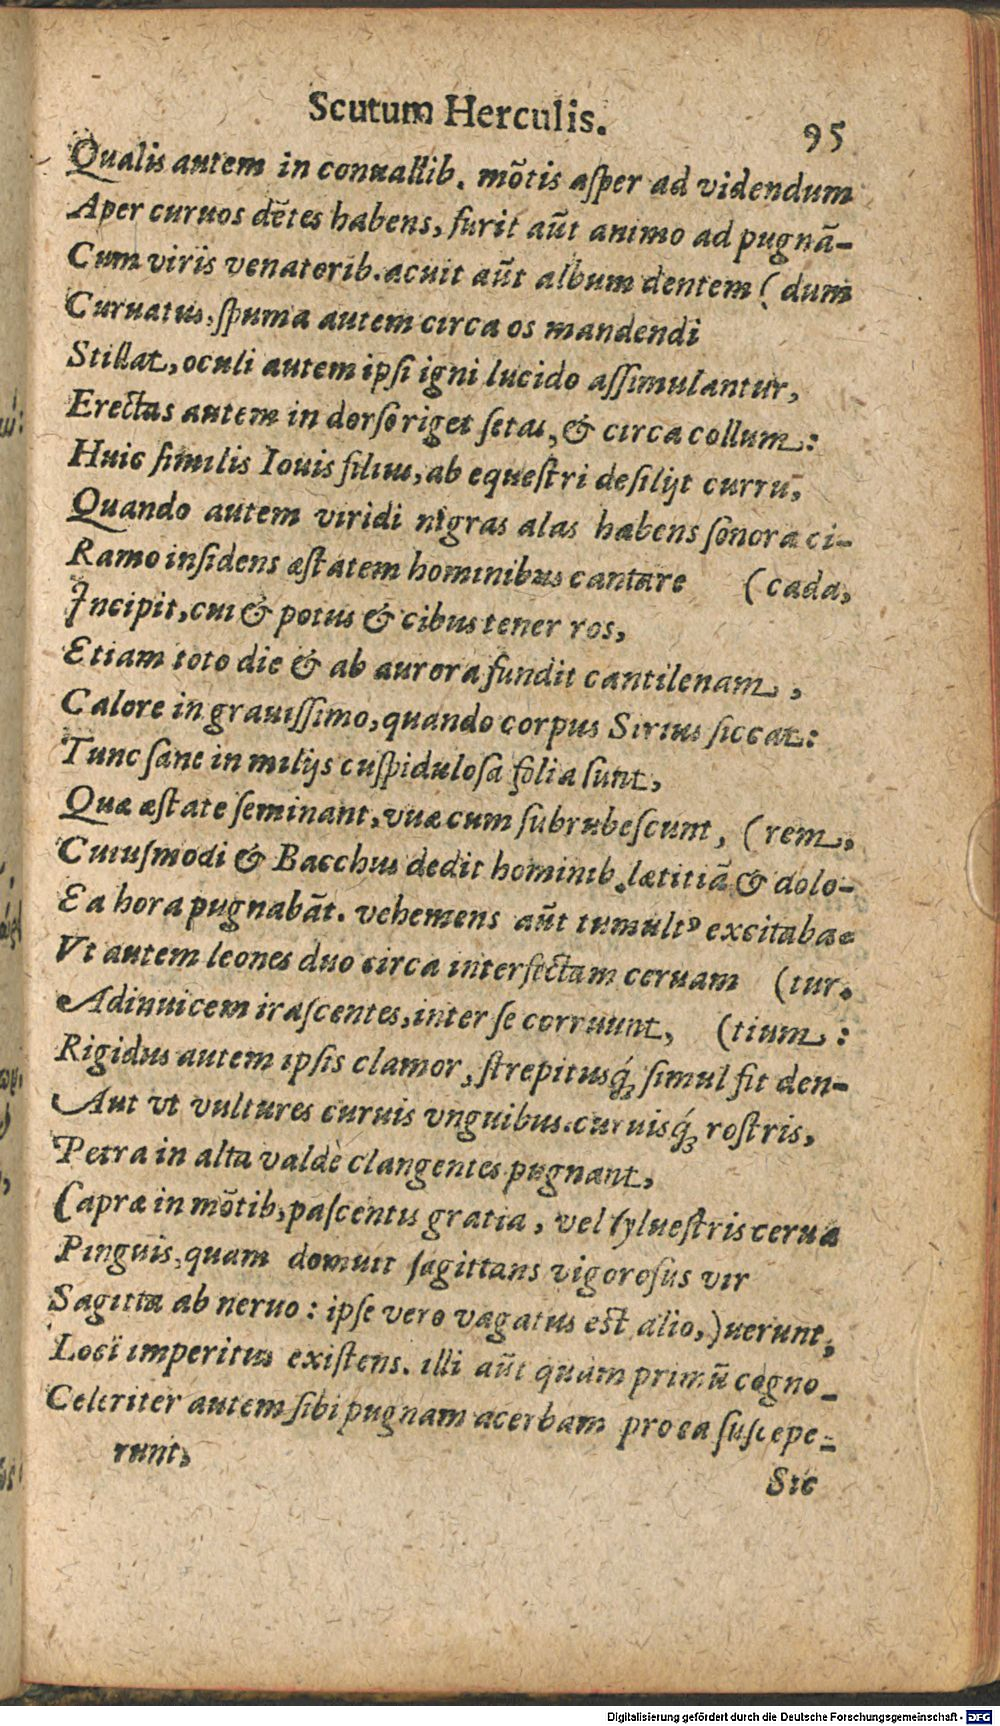 Scutum Herculis.
95
Qualis autem in conuallib. mõtis aſper ad videndum
Aper curuos dẽtes habens, furit aũt animo ad pugnã-
Cum viris venatorib. acuit aũt album dentem ( dum
Curuatus, ſpuma autem circa os mandendi
Stillat, oculi autem ipſi igni lucido aſſimulantur,
Erectas autem in dorſo riget ſetas, & circa collum:
Huic ſimilis Iouis filius, ab equeſtri deſilijt curru,
Quando autem viridi nigras alas habens ſonora ci-
Ramo inſidens æſtatem hominibus cantare ( cada,
Incipit, cui & potus & cibus tener ros,
Etiam toto die & ab aurora fundit cantilenam,
Calore in grauiſſimo, quando corpus Sirius ſiccat:
Tunc ſane in milijs cuſpidulosa folia ſunt,
Quæ æſtate ſeminant, vuæ cum ſubrubeſcunt, ( rem,
Cuiuſmodi & Bacchus dedit hominib. lætitiã & dolo-
Ea hora pugnabãt. vehemens aũt tumultꝰ excitaba-
Vt autem leones duo circa interfectam ceruam ( tur.
Adinuicem iraſcentes, inter ſe corruunt, ( tium:
Rigidus autem ipſis clamor, ſtrepitusq́; ſimul fit den-
Aut vt vultures curuis vnguibus. curuisq́; roſtris,
Petra in alta valdè clangentes pugnant,
Capræ in mõtib. paſcentis gratia, vel ſylueſtris cerua
Pinguis, quam domuit ſagittans vigorosus vir
Sagitta ab neruo: ipſe vero vagatus eſt alio, ) uerunt,
Loci imperitus exiſtens. illi aũt quàm primũ cogno-
Celeriter autem ſibi pugnam acerbam pro ea ſuſcepe-
runt,
Sic
Digitalisierung gefördert durch die Deutsche Forschungsgemeinschaft - DFG